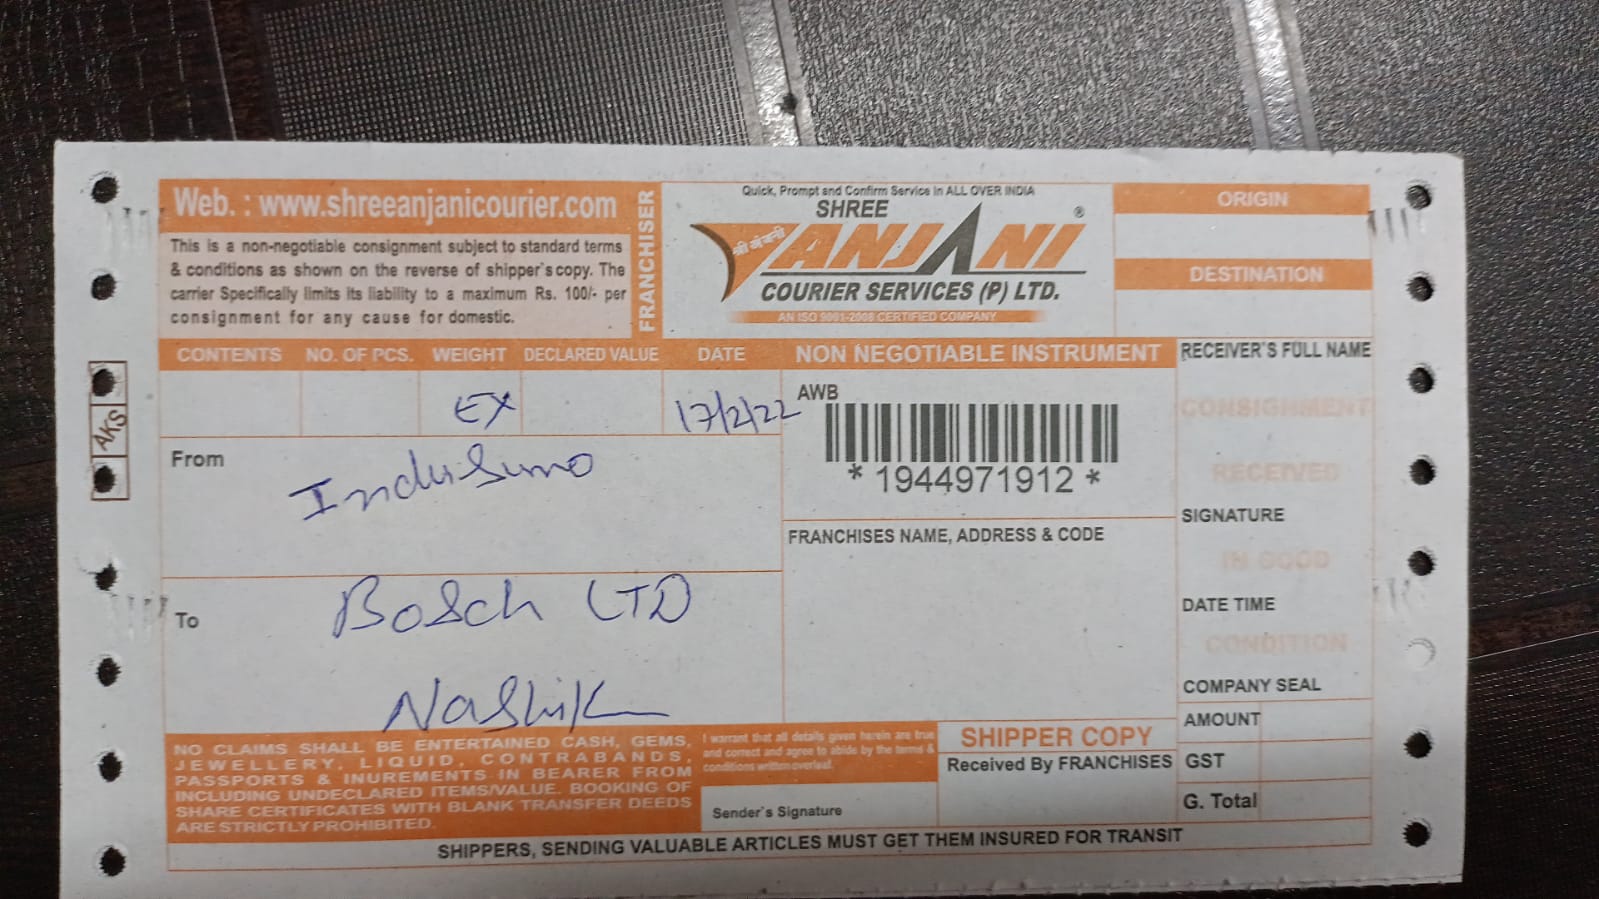 Web. : www.shreeanjanicourier.com
This is a non-negotiable consignment subject to standard terms
& conditions as shown on the reverse of shipper's copy. The
carrier Specifically limits its liability to a maximum Rs. 100/- per
consignment for any cause for domestic.
FRANCHISER
Quick, Prompt and Confirm Service in ALL OVER INDIA
SHREE
ANJANI ®
COURIER SERVICES (P) LTD.
AN ISO 9001-2008 CERTIFIED COMPANY
ORIGIN
DESTINATION
CONTENTS NO. OF PCS. WEIGHT DECLARED VALUE DATE NON NEGOTIABLE INSTRUMENT
EX 17/2/22
AWB
* 1944971912 *
AKS
From
IndusSumo
To
Bosch LTD
Nashik
FRANCHISES NAME, ADDRESS & CODE
RECEIVER'S FULL NAME
CONSIGNMENT
RECEIVED
SIGNATURE
IN GOOD
DATE TIME
CONDITION
COMPANY SEAL
AMOUNT
GST
G. Total
NO CLAIMS SHALL BE ENTERTAINED CASH, GEMS,
JEWELLERY, LIQUID, CONTRABANDS,
PASSPORTS & INUREMENTS IN BEARER FROM
INCLUDING UNDECLARED ITEMS/VALUE. BOOKING OF
SHARE CERTIFICATES WITH BLANK TRANSFER DEEDS
ARE STRICTLY PROHIBITED.
I warrant that all details given herein are true
and correct and agree to abide by the terms &
conditions written overleaf.
Sender's Signature
SHIPPER COPY
Received By FRANCHISES
SHIPPERS, SENDING VALUABLE ARTICLES MUST GET THEM INSURED FOR TRANSIT